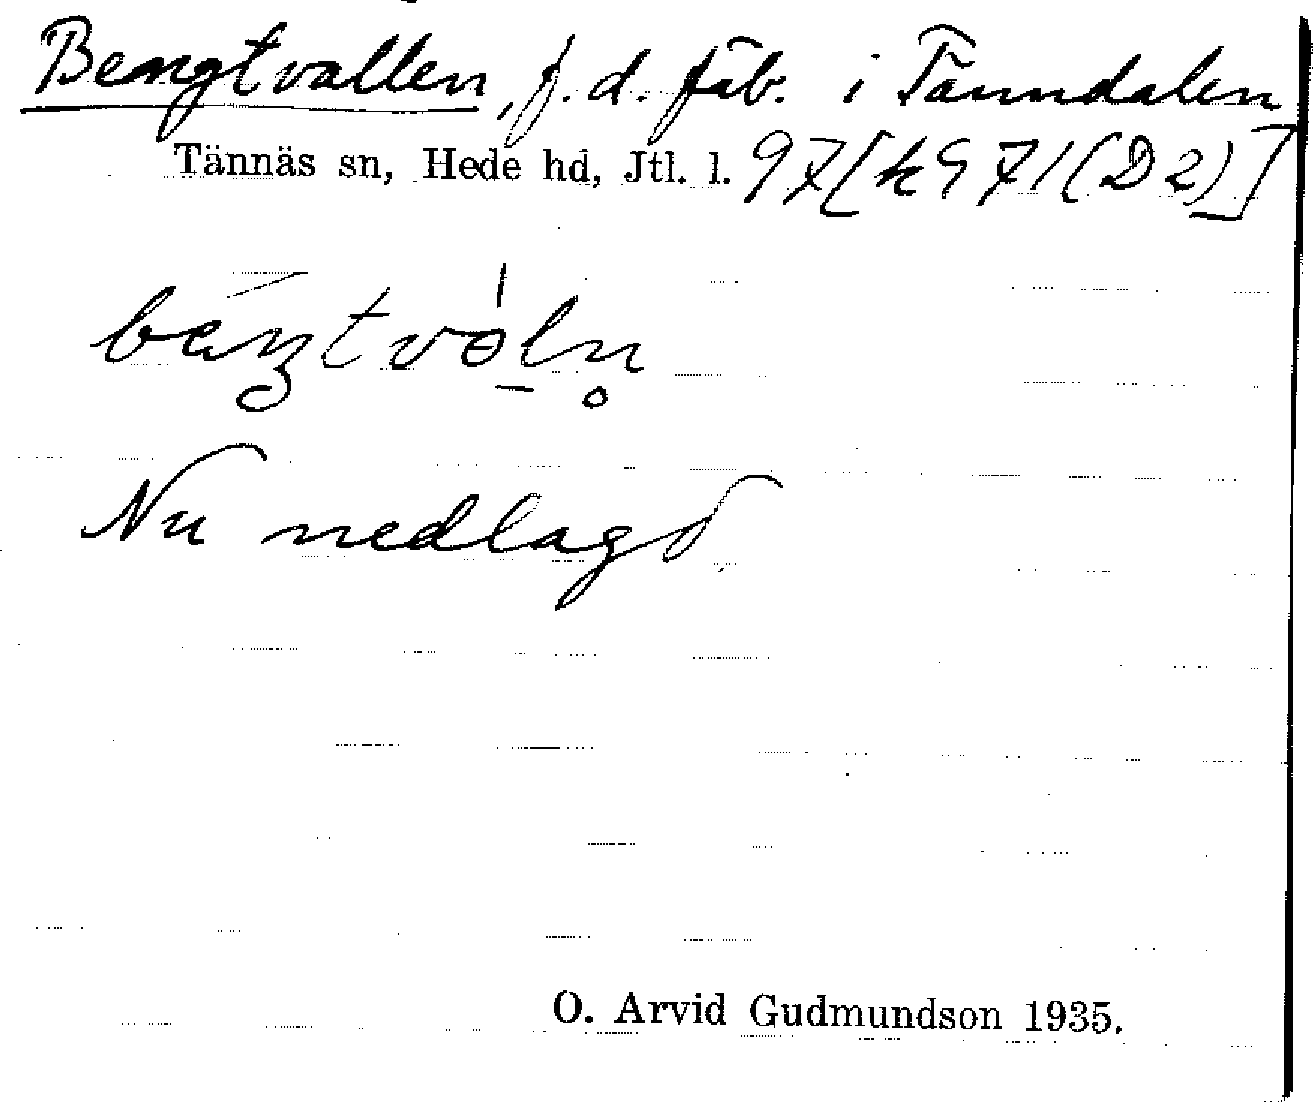 Bengtvallen, f.d. fäb. i Tänndalen
Tännäs sn, Hede hd, Jtl. l. 97[k971(D2)]
Nu nedlagd
O. Arvid Gudmundson 1935.